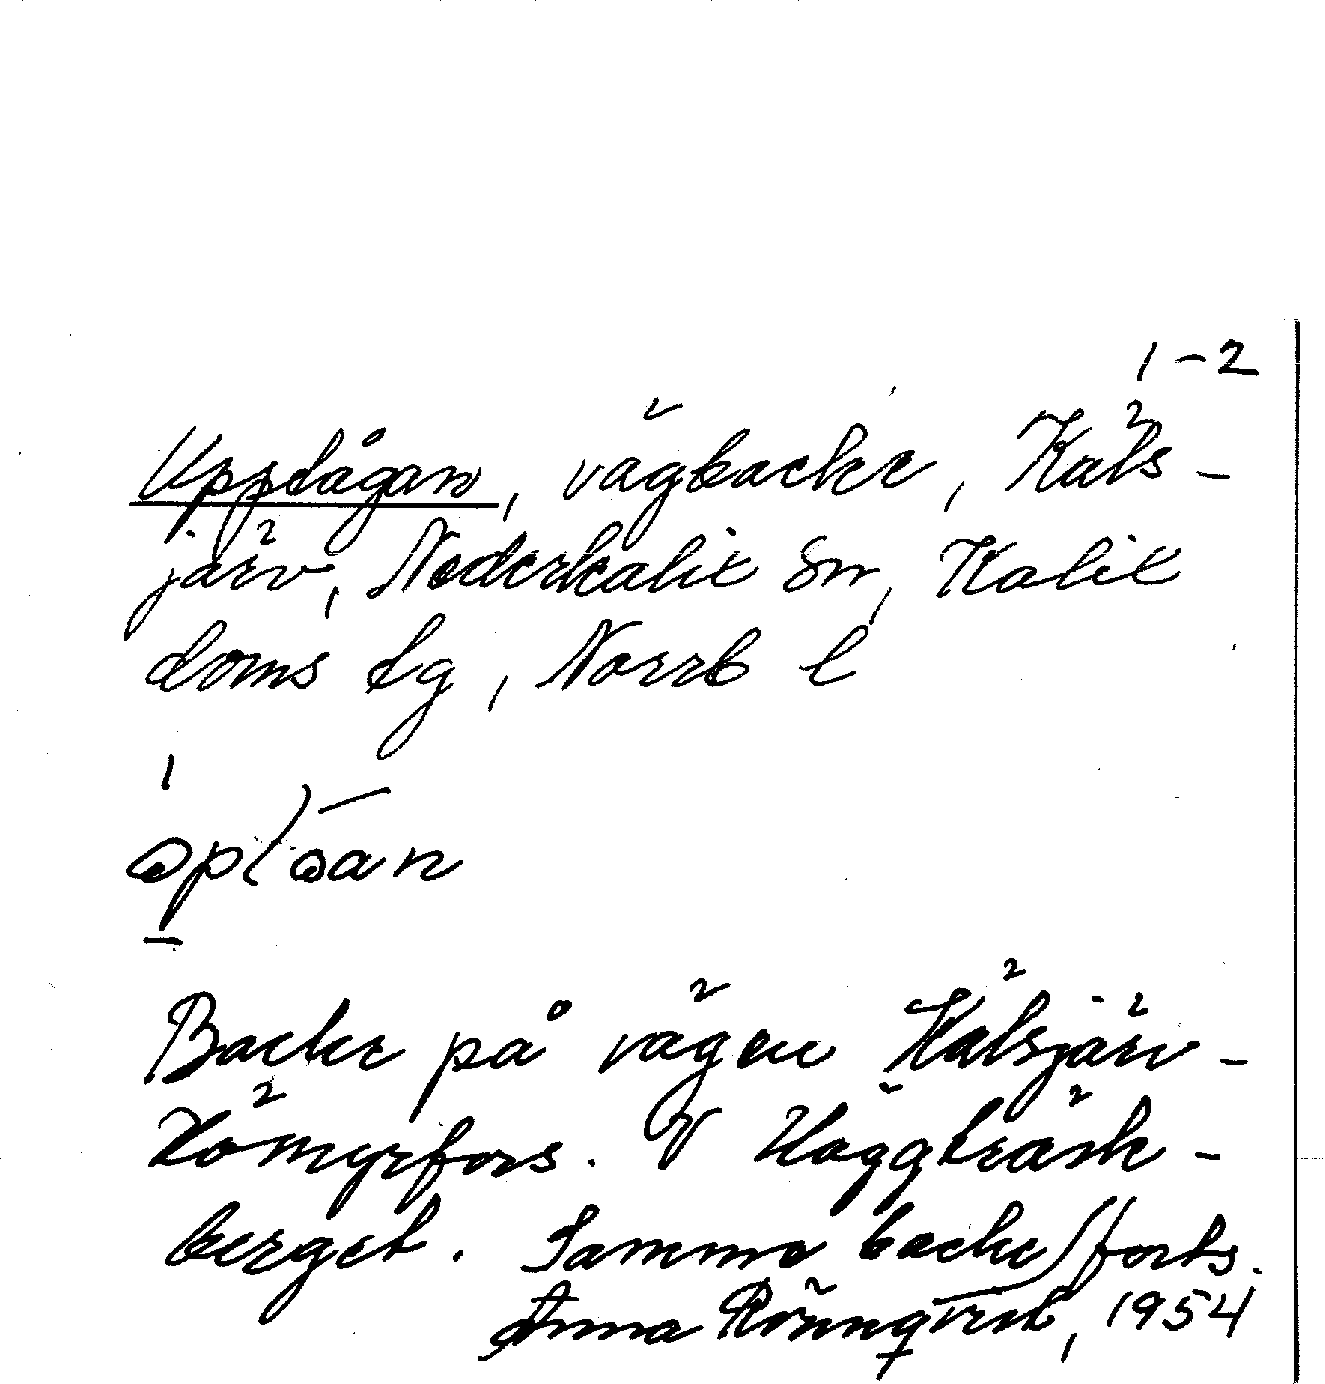 1-2
Upptågan, vägbacke, Käls-
järv, Nederkalix sn, Kalix
doms lg, Norrb l
Backe på vägen Kälsjärv-
Hömyrfors. V Häggträsk-
berget. Samma backe/forts.
Anna Rönnqvist, 1954